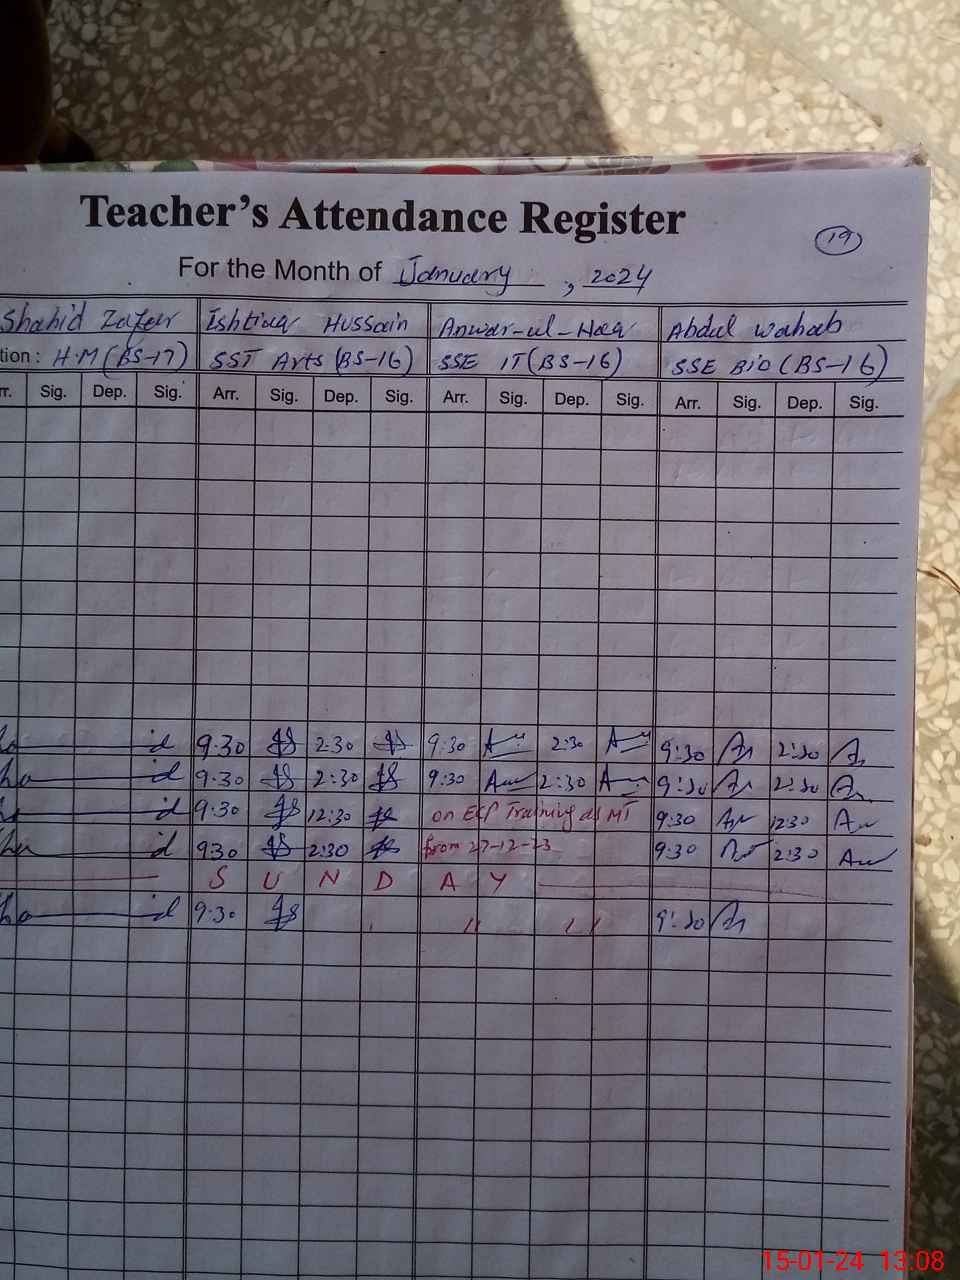 Teacher's Attendance Register
19
For the Month of January, 2024
Shahid Zafar Ishtiaq Hussain Anwar-ul-Haq Abdul Wahab
tion : H.M (BS-17) SST Arts (BS-16) SSE IT (BS-16) SSE BiO (BS-16)
rr. Sig. Dep. Sig. Arr. Sig. Dep. Sig. Arr. Sig. Dep. Sig. Arr. Sig. Dep. Sig.
id 9.30 2:30 9:30 2:30 9:30 2:30
id 9.30 2:30 9:30 2:30 9:30 2:30
id 9.30 12:30 on ECP Training as MT 9:30 12:30
id 930 2:30 from 27-12-23 9:30 2:30
S U N D A Y
id 9.30 " " 9:30
15-01-24 13:08